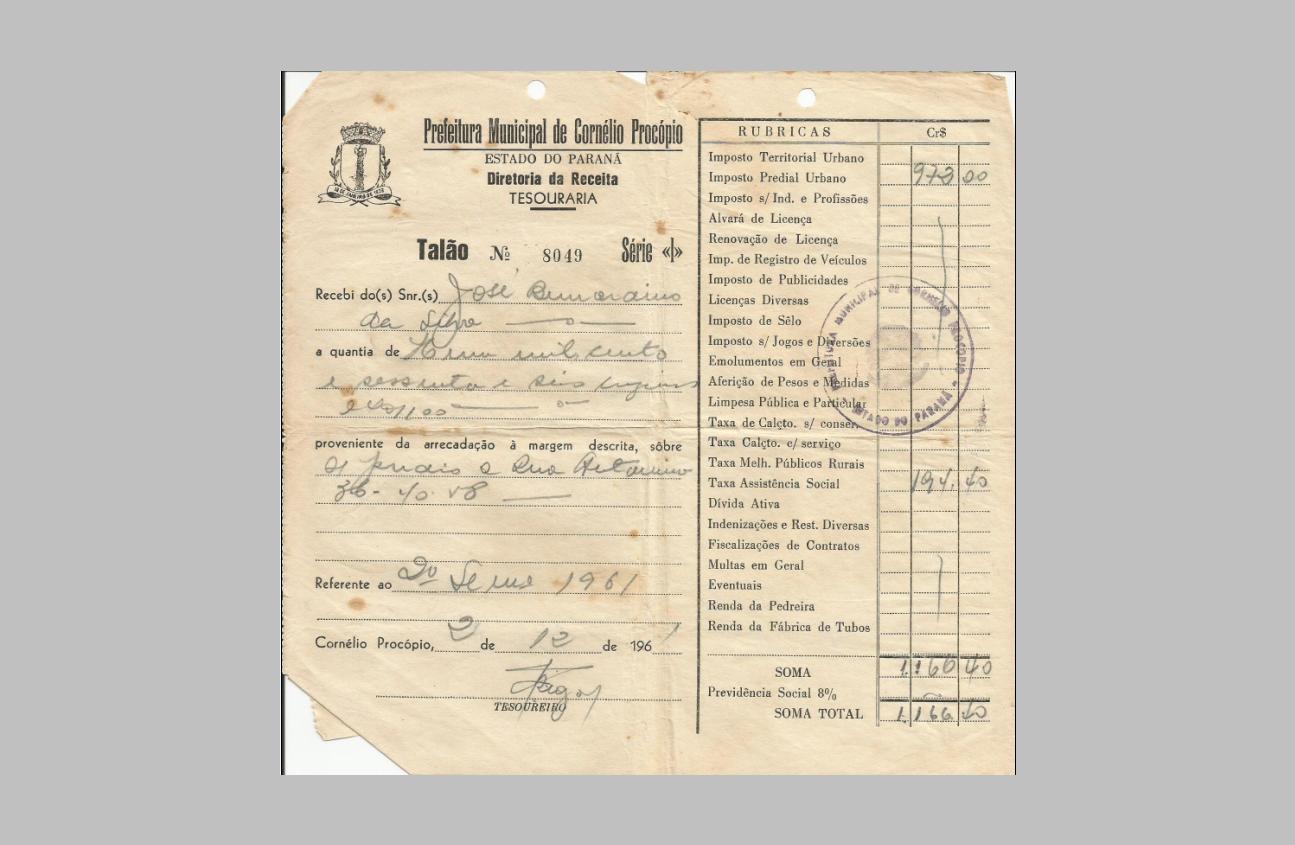 Prefeitura Municipal de Cornélio Procópio
ESTADO DO PARANÁ
Diretoria da Receita
TESOURARIA
Talão Nº 8049 Série «I»
Recebi do(s) Snr.(s) José Bernardino
da Silva
a quantia de Hum mil cento
e sessenta e seis
proveniente da arrecadação à margem descrita, sôbre
a Rua
36-40-48
Referente ao 2º 1961
Cornélio Procópio, 2 de 12 de 1961
TESOUREIRO
RUBRICAS Cr$
Imposto Territorial Urbano
Imposto Predial Urbano 973 00
Imposto s/Ind. e Profissões
Alvará de Licença
Renovação de Licença
Imp. de Registro de Veículos
Imposto de Publicidades
Licenças Diversas
Imposto de Sêlo
Imposto s/Jogos e Diversões
Emolumentos em Geral
Aferição de Pesos e Medidas
Limpesa Pública e Particular
Taxa de Calçto. s/ conser.
Taxa Calçto. c/ serviço
Taxa Melh. Públicos Rurais
Taxa Assistência Social 194. 40
Dívida Ativa
Indenizações e Rest. Diversas
Fiscalizações de Contratos
Multas em Geral
Eventuais
Renda da Pedreira
Renda da Fábrica de Tubos
SOMA 1.166 40
Previdência Social 8%
SOMA TOTAL 1.166 40
PREFEITURA MUNICIPAL DE CORNÉLIO PROCÓPIO
ESTADO DO PARANÁ